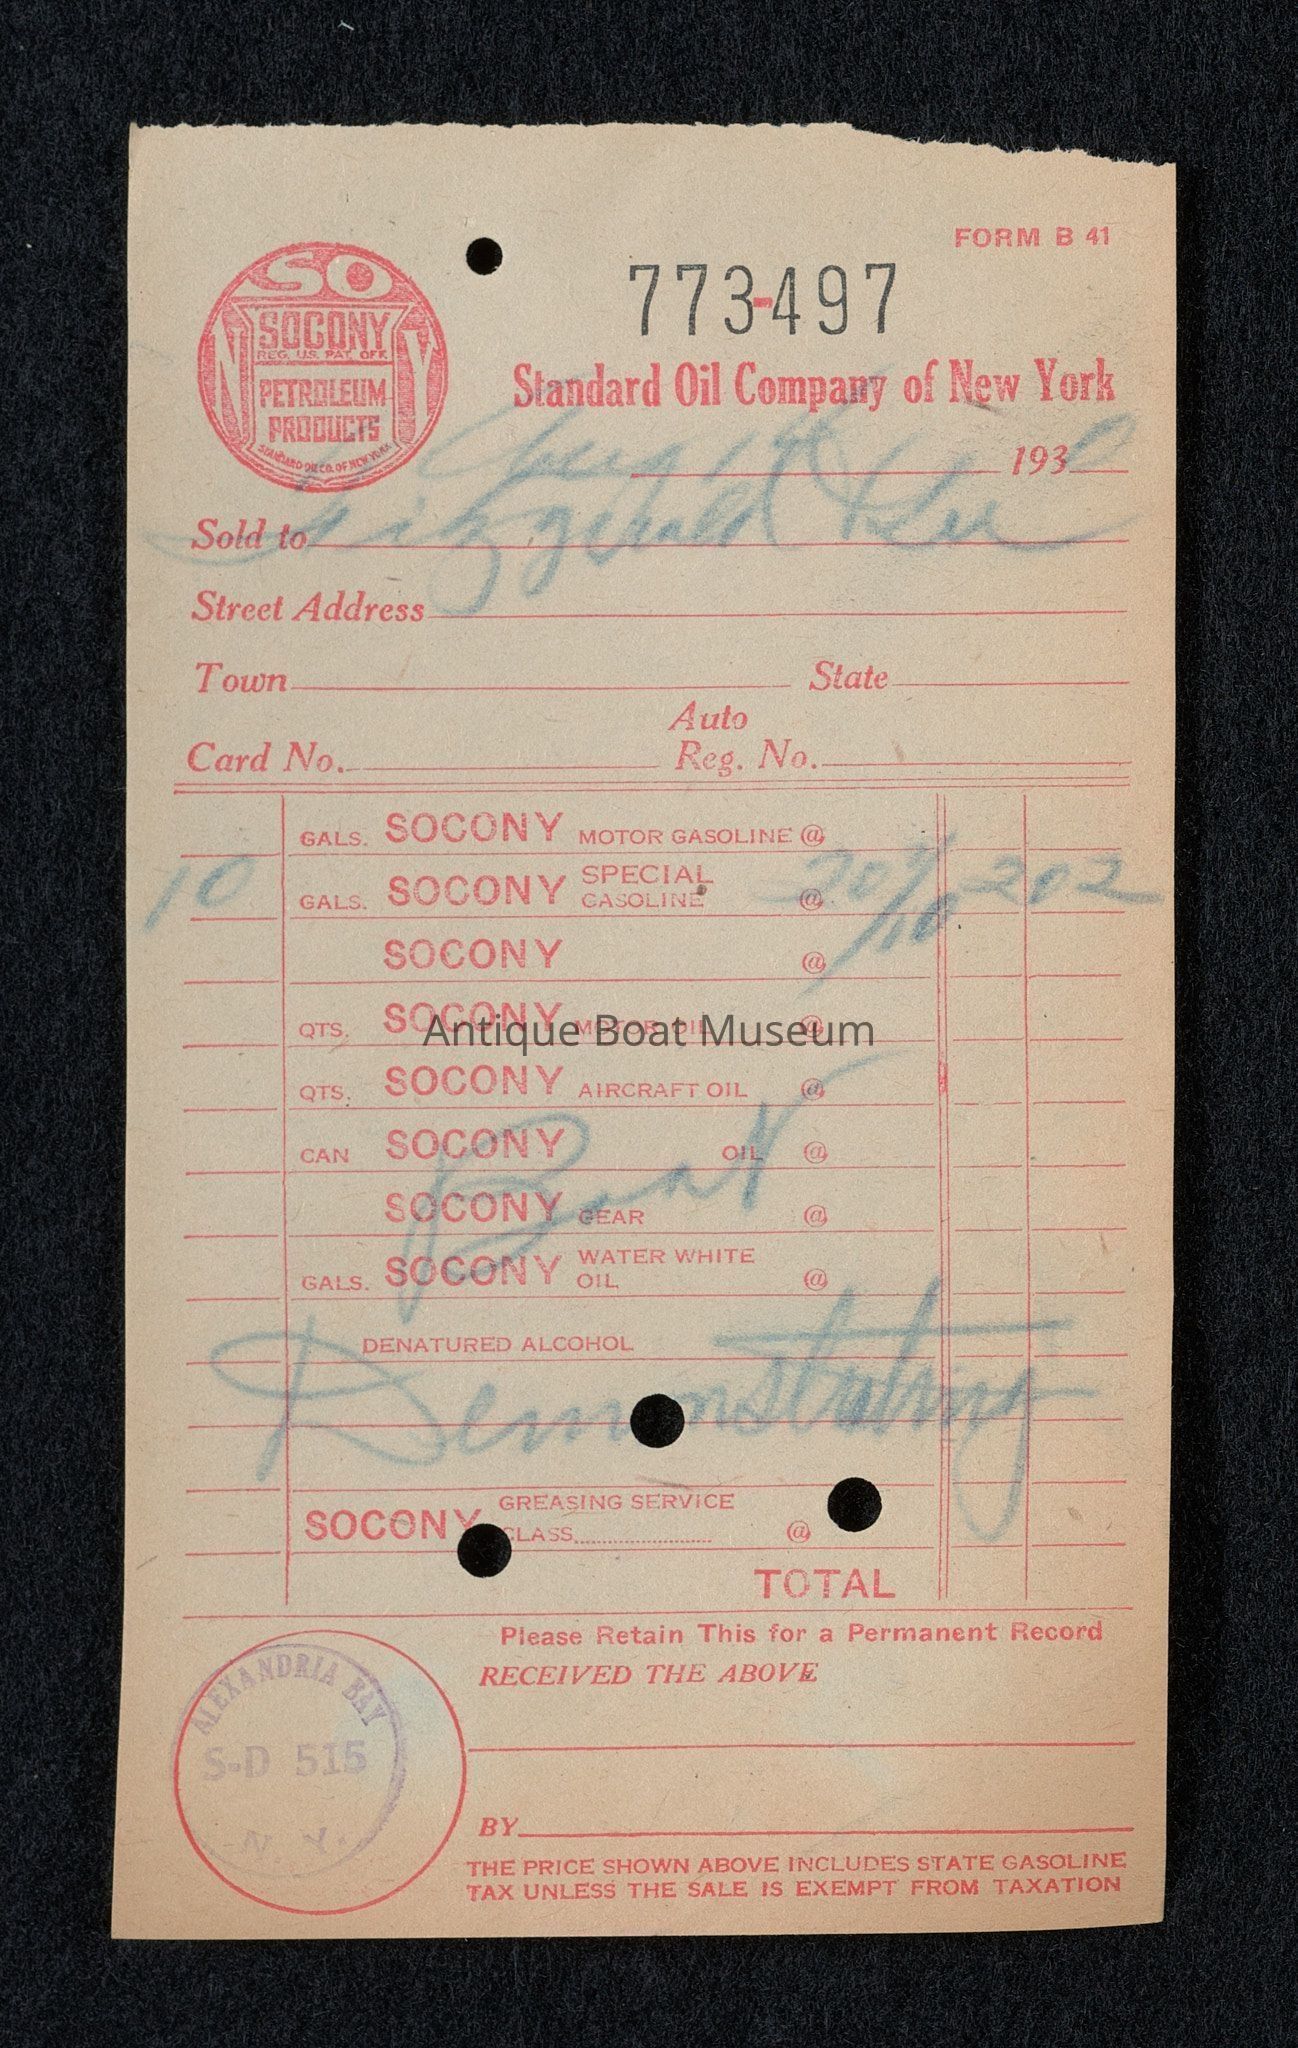 FORM B 41
773-497
SO
N Y
SOCONY
REG. U.S. PAT. OFF.
PETROLEUM
PRODUCTS
STANDARD OIL CO. OF NEW YORK
Standard Oil Company of New York
Aug 193 0
Sold to Fitzgerald & Lee
Street Address
Town State
Auto
Card No. Reg. No.
GALS. SOCONY MOTOR GASOLINE @
10 GALS. SOCONY SPECIAL GASOLINE @ 20 2/10 2 02
SOCONY @
QTS. SOCONY MOTOR OIL @
Antique Boat Museum
QTS. SOCONY AIRCRAFT OIL @
CAN SOCONY OIL @
Boat
SOCONY GEAR @
GALS. SOCONY WATER WHITE OIL @
DENATURED ALCOHOL
Demonstrating
SOCONY GREASING SERVICE
CLASS @
TOTAL
Please Retain This for a Permanent Record
RECEIVED THE ABOVE
ALEXANDRIA BAY
S-D 515
N. Y.
BY
THE PRICE SHOWN ABOVE INCLUDES STATE GASOLINE
TAX UNLESS THE SALE IS EXEMPT FROM TAXATION